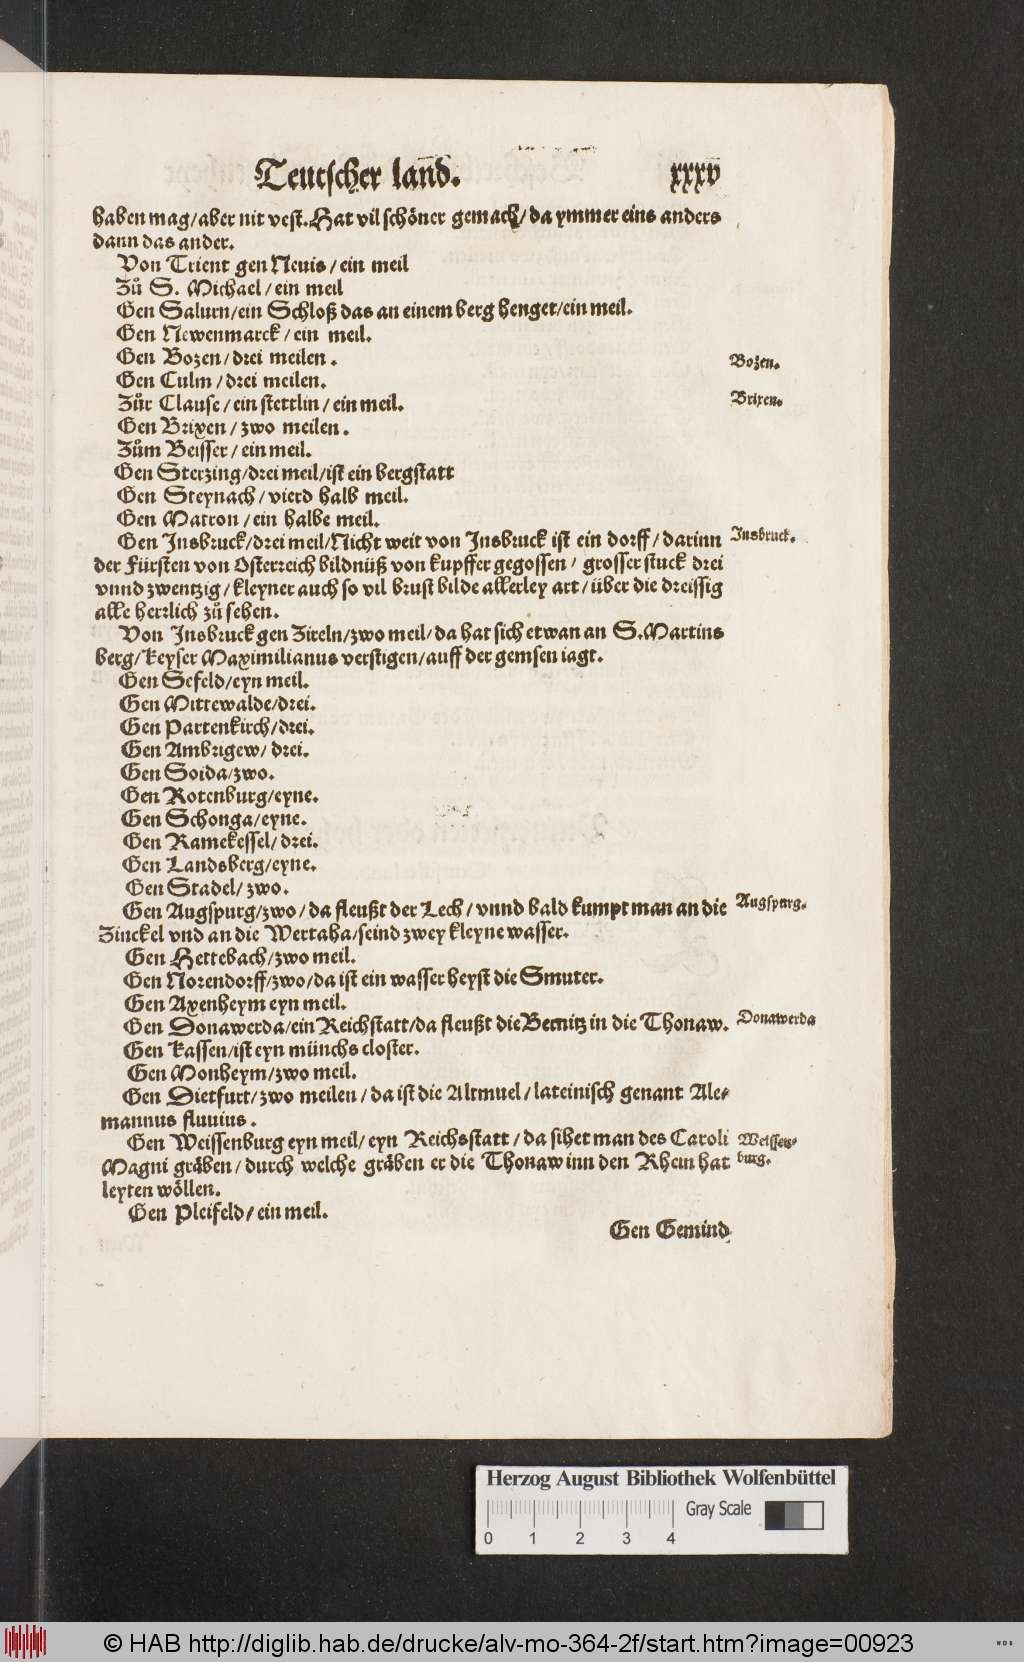 Teutscher lañd.
xxxv
haben mag/aber nit vest. Hat vil schöner gemach/da ymmer eins anders
dann das ander.
Von Trient gen Nevis/ein meil
Zů S. Michael/ein meil
Gen Salurn/ein Schloß das an einem berg henget/ein meil.
Gen Newenmarck/ein meil.
Gen Bozen/drei meilen.
Bozen.
Gen Culm/drei meilen.
Zůr Clause/ein stettlin/ein meil.
Brixen.
Gen Brixen/zwo meilen.
Zům Beisser/ein meil.
Gen Sterzing/drei meil/ist ein bergstatt
Gen Steynach/vierd halb meil.
Gen Matron/ein halbe meil.
Gen Insbruck/drei meil/Nicht weit von Insbruck ist ein dorff/darinn
Insbruck.
der Fürsten von Osterreich bildnüß von kupffer gegossen/grosser stuck drei
vnnd zwentzig/kleyner auch so vil brust bilde allerley art/über die dreissig
alle herrlich zů sehen.
Von Insbruck gen Zireln/zwo meil/da hat sich etwan an S. Martins
berg/Keyser Maximilianus verstigen/auff der gemsen iagt.
Gen Sefeld/eyn meil.
Gen Mittewalde/drei.
Gen Partenkirch/drei.
Gen Ambrigew/drei.
Gen Soida/zwo.
Gen Rotenburg/eyne.
Gen Schonga/eyne.
Gen Ramekessel/drei.
Gen Landsberg/eyne.
Gen Stadel/zwo.
Gen Augspurg/zwo/da fleußt der Lech/vnnd bald kumpt man an die
Augspurg.
Zinckel vnd an die Wertaha/seind zwey kleyne wasser.
Gen Hettebach/zwo meil.
Gen Norendorff/zwo/da ist ein wasser heyst die Smuter.
Gen Axenheym eyn meil.
Gen Donawerda/ein Reichstatt/da fleußt die Bernitz in die Thonaw.
Donawerda
Gen Kassen/ist eyn münchs closter.
Gen Monheym/zwo meil.
Gen Dietfurt/zwo meilen/da ist die Altmuel/lateinisch genant Ale-
mannus fluvius.
Gen Weissenburg eyn meil/eyn Reichsstatt/da sihet man des Caroli
Weissen-
Magni gräben/durch welche gräben er die Thonaw inn den Rhein hat
burg.
leyten wöllen.
Gen Pleifeld/ein meil.
Gen Gemünd
Herzog August Bibliothek Wolfenbüttel
Gray Scale
0 1 2 3 4
© HAB http://diglib.hab.de/drucke/alv-mo-364-2f/start.htm?image=00923